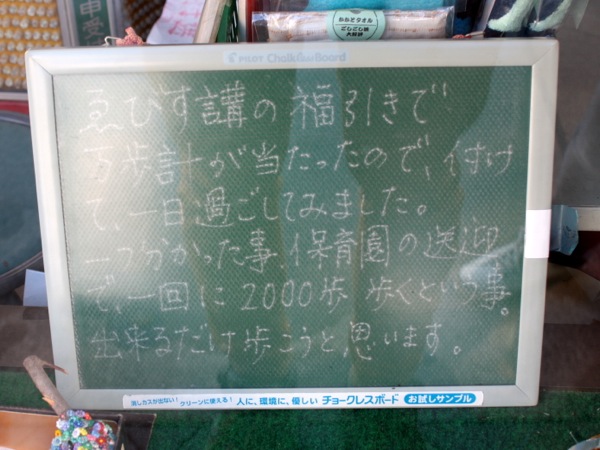 かかとタオル
ごしごし健
PILOT Chalkless Board
ゑびす講の福引きで
万歩計が当たったので、付け
て、一日過ごしてみました。
一つ分かった事、保育園の送迎
で、一回に2000歩 歩くという事。
出来るだけ歩こうと思います。
消しカスが出ない!
クリーンに使える! 人に、環境に、優しい チョークレスボード お試しサンプル